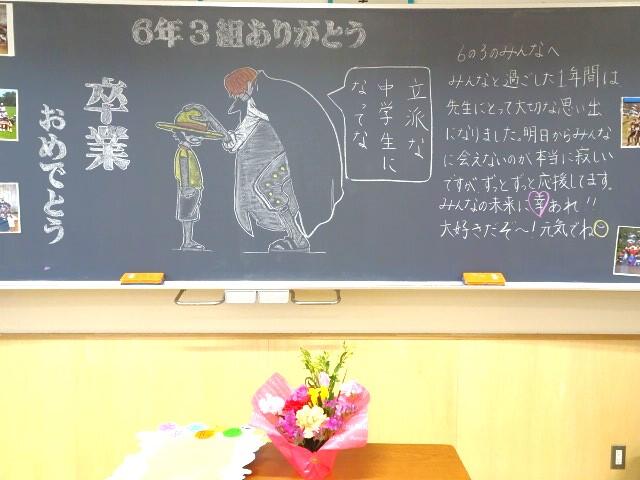 6年3組ありがとう
卒業
おめでとう
立派な
中学生に
なってな
6の3のみんなへ
みんなと過ごした1年間は
先生にとって大切な思い出
になりました。明日からみんな
に会えないのが本当に寂しい
ですが、ずっとずっと応援してます。
みんなの未来に幸あれ!!
大好きだぞ〜!元気でね